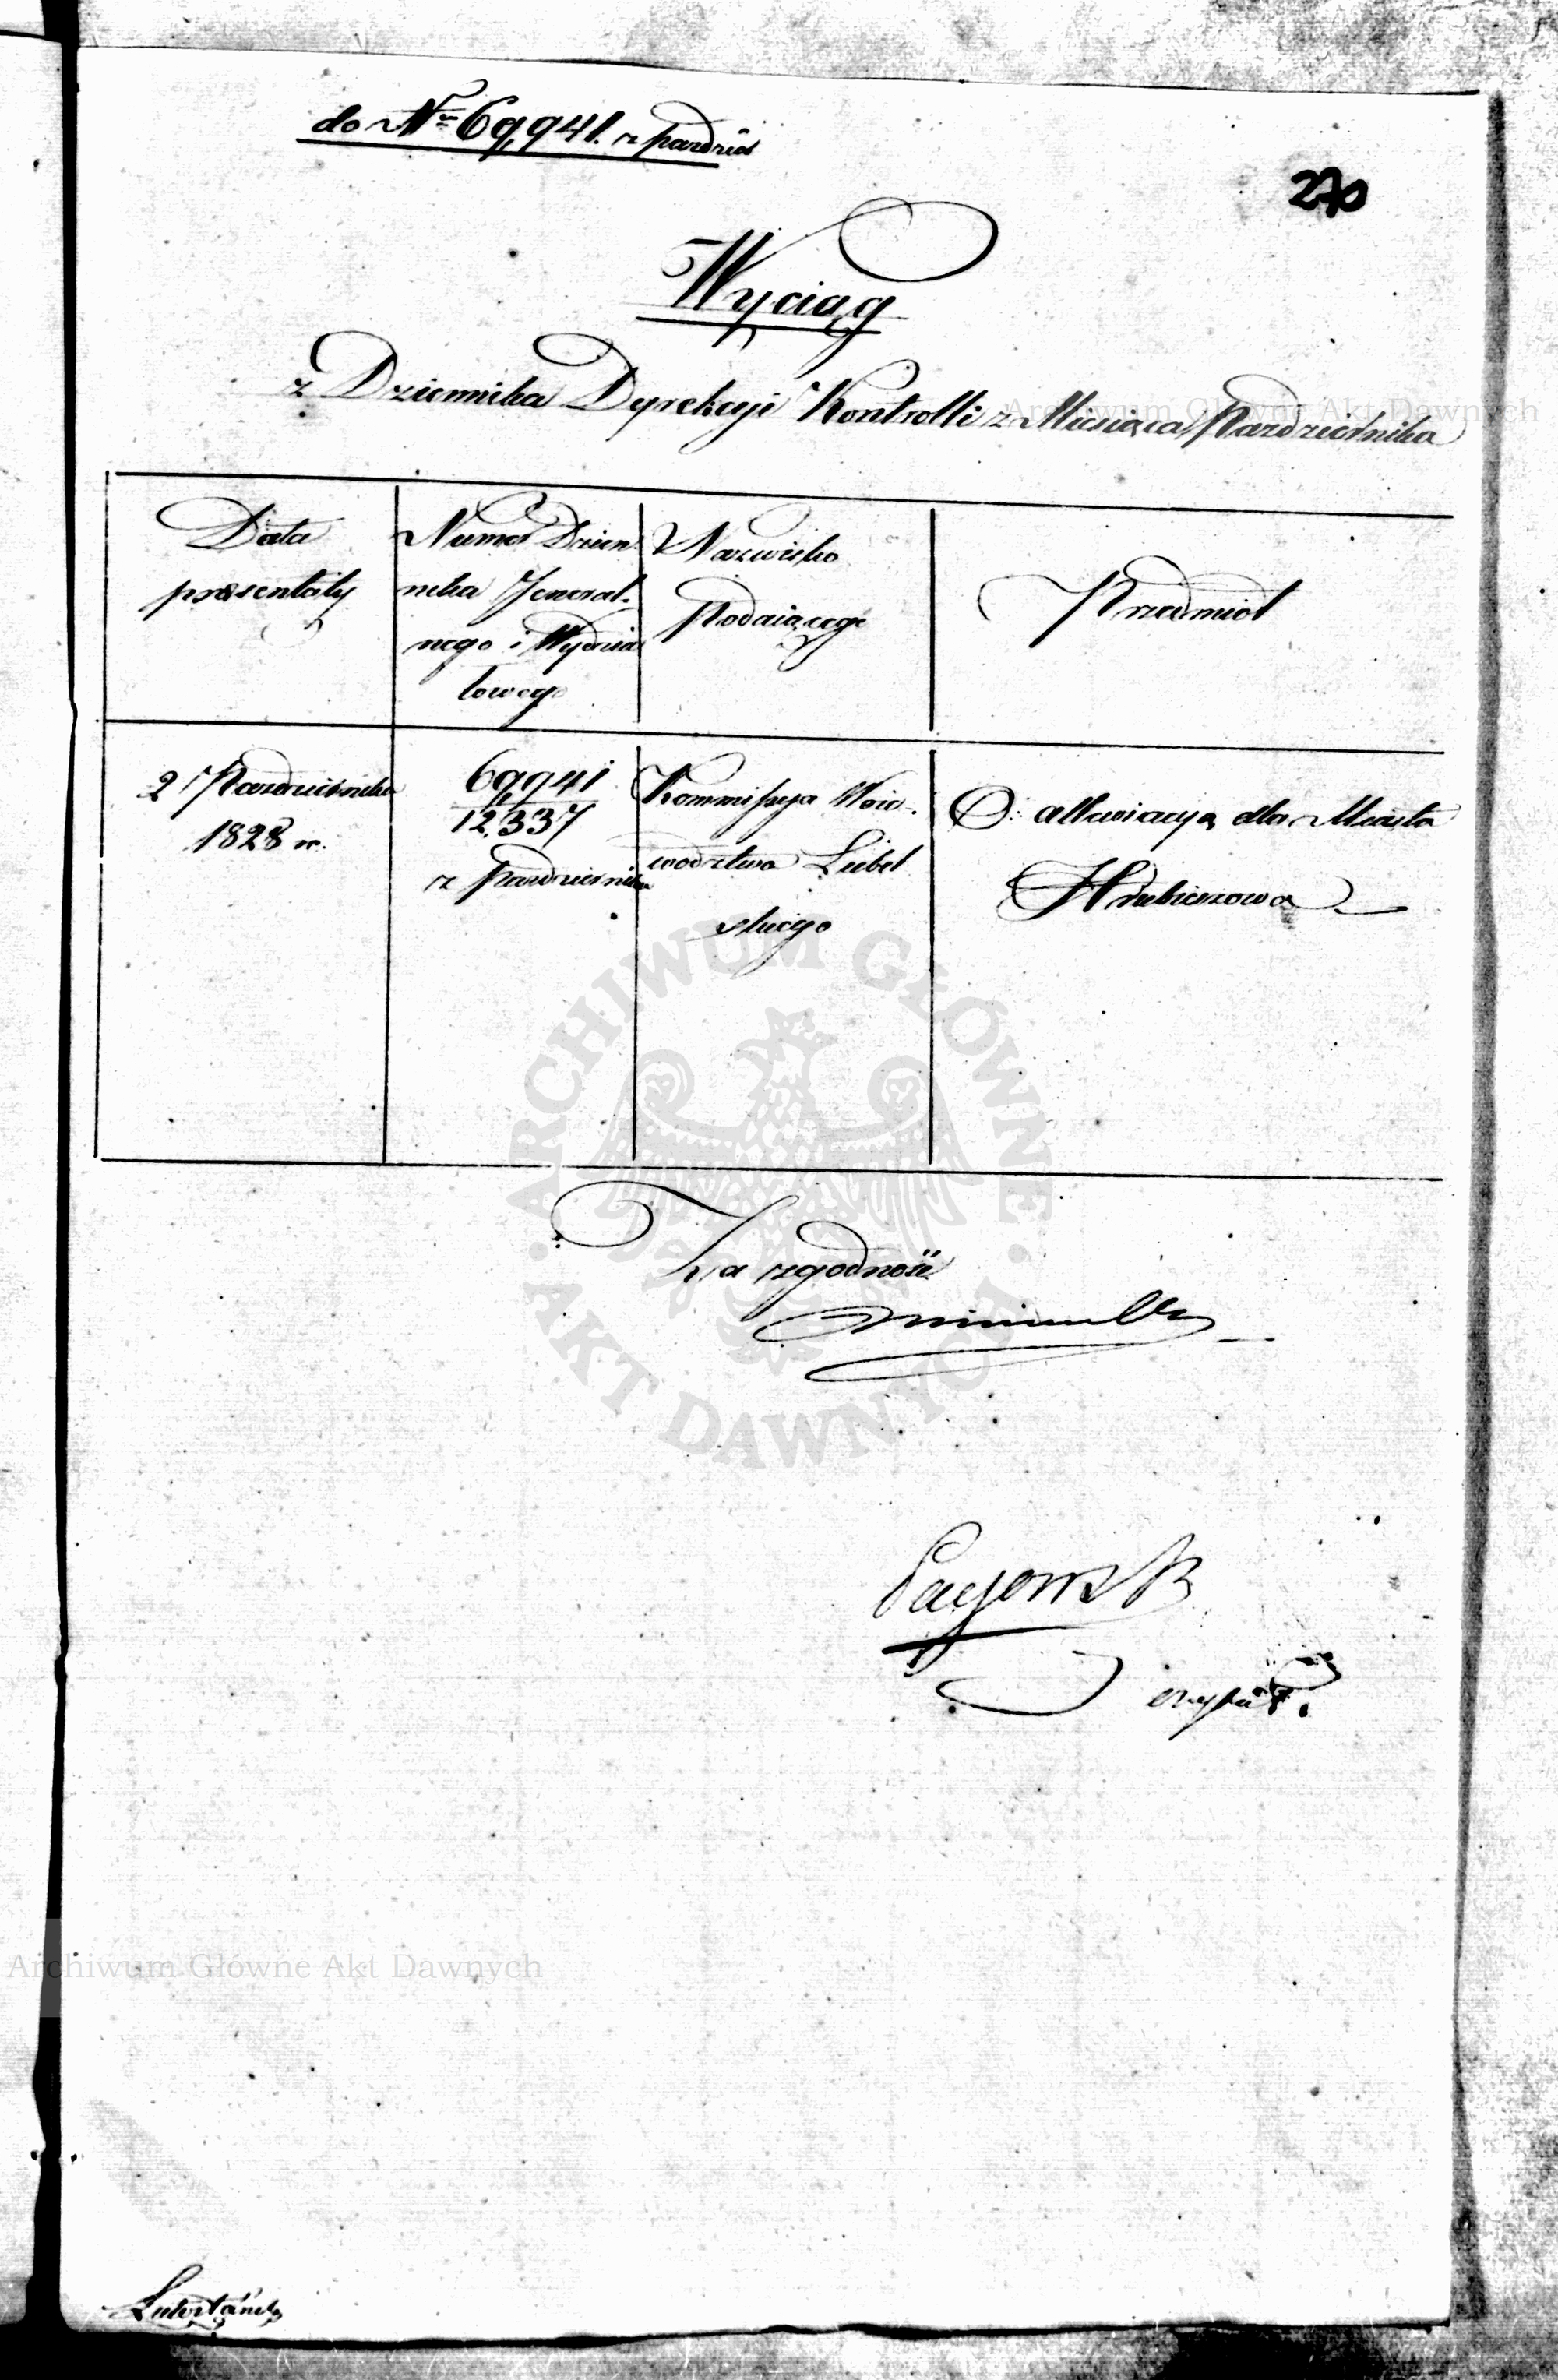 do Nr 69,941. z paździer
270
Wyciąg
z Dziennika Dyrekcyi Kontrolli z Miesiąca Października
Data
presentaty
Numer Dzien-
nika Jeneral-
nego i Wydzia
łowego
Nazwisko
Podaiącego
Przedmiot
2 Października
1828 r.
69,941
12,337
z Października
Kommissya Woie-
wodztwa Lubel
skiego
O. attwiacyą dla Miasta
Hrubieszowa
Za zgodność
Archiwum Główne Akt Dawnych
ARCHIWUM GŁÓWNE
AKT DAWNYCH
Archiwum Główne Akt Dawnych